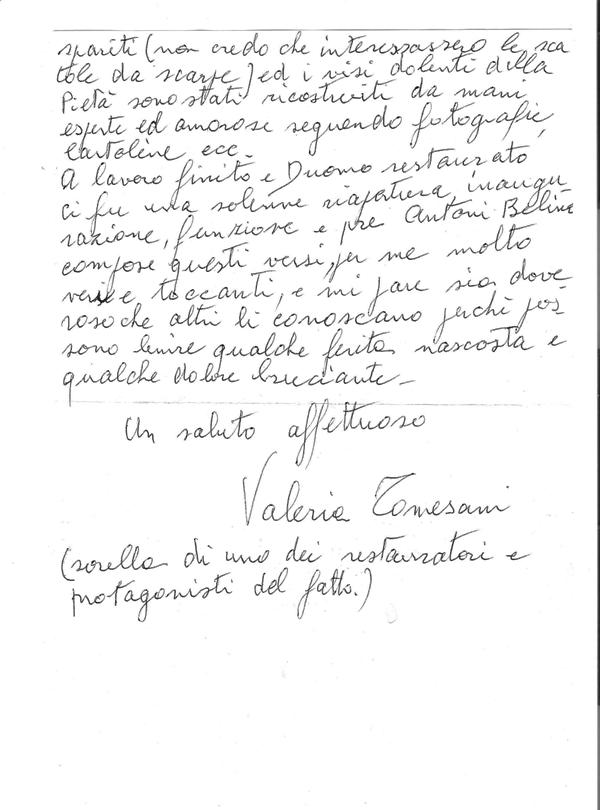 spariti (non credo che interessassero le sca
tole da scarpe) ed i visi dolenti della
Pietà sono stati ricostruiti da mani
esperte ed amorose seguendo fotografie,
cartoline ecc.
A lavoro finito e Duomo restaurato
ci fu una solenne riapertura, inaugu-
razione, funzione e pre Antoni Beline
compose questi versi, per me molto
veri e toccanti, e mi pare sia dove
roso che altri li conoscano perchè pos-
sono lenire qualche ferita nascosta e
qualche dolore bruciante -
Un saluto affettuoso
Valeria Tomesani
(sorella di uno dei restauratori e
protagonisti del fatto.)